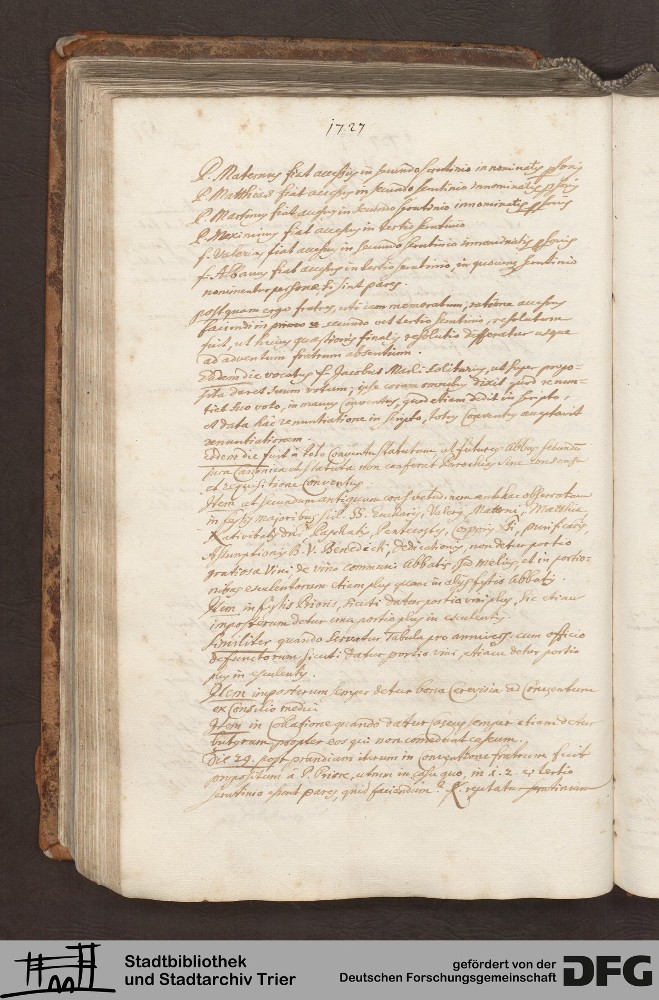 1727
P. Maternus fiat accessus in secundo scrutinio innominatis psonis
P. Matthias fiat accessus in secundo scrutinio innominatis psonis
P. Martinus fiat accessus in secundo scrutinio innominatis psonis
P. Maximinus fiat accessus in tertio scrutinio
f. Valerius fiat accessus in secundo scrutinio innominatis psonis
f. Albanus fiat accessus in tertio scrutinio, in quocunq scrutinio
nominentur personæ si sint pares.
postquam ergo fratres, uti iam memoratum, ratione accessus
faciendi in secundo vel tertio scrutinio, resolutum
fuit, ut huius quæstionis finalis resolutio differatur usque
ad adventum fratrum absentium.
Eadem die vocatus f. Jacobus Solitarius, ut super propo-
sita daret suum votum; ipse coram omnibus dixit quod renun-
tiet suo voto, in manus Conventus, quod etiam dedit in scripto,
et data hac renuntiatione in scripto, totus Conventus acceptavit
renuntiationem.
Eodem die fuit a toto Conventu statutum, ut futurus Abbas secundum
jura Canonica et statuta non conferat Parochias sine consensu
et requisitione Conventus
Item ut secundum antiquam consuetud. nem antehac observatam
in festis majoribus scil. SS. Eucharii, Valerii, Materni, Matthiæ,
Nativitatis Dni, Paschatis, Pentecostes, Corporis Xi, purificaois,
Assumptionis B. V. Benedicti, Dedicationis, non detur portio
gratiosa Vini de vino communi Abbatis sed melius, et in portio-
nibus esculentorum etiam plus quam in aliis festis Abbatis.
Item in festis Prioris, sicuti datur portio vini plus, sic etiam
imposterum detur una portio plus in esculentis.
Similiter quando servatur Tabula pro annivers. cum officio
defunctorum sicuti datur portio vini, etiam detur portio
plus in esculentis.
Item imposterum semper detur bona Cerevisia ad Conventum
ex Consilio medici
Item in Collatione quando datur caseus semper etiam detur
butyrum propter eos qui non comedunt caseum.
Die 29. post prandium iterum in conventione fratrum fuit
propositum a P. Priore, utrum in casu quo, in 1. 2. et tertio
scrutinio essent pares, quid faciendum? R. repetatur scrutinium
Stadtbibliothek
und Stadtarchiv Trier
gefördert von der
Deutschen Forschungsgemeinschaft
DFG